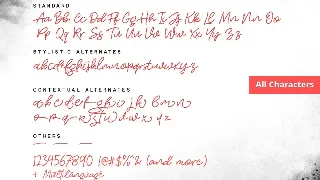 STANDARD
Aa Bb Cc Dd Ff Gg Hh Ii Jj Kk Ll Mm Nn Oo
Pp Qq Rr Ss Tt Uu Vv Ww Xx Yy Zz
STYLISTIC ALTERNATES
abcdefghijklmnopqrstuvwxyz
All Characters
CONTEXTUAL ALTERNATES
OTHERS
1234567890 !@#$%^& (and more)
+ Multilanguage